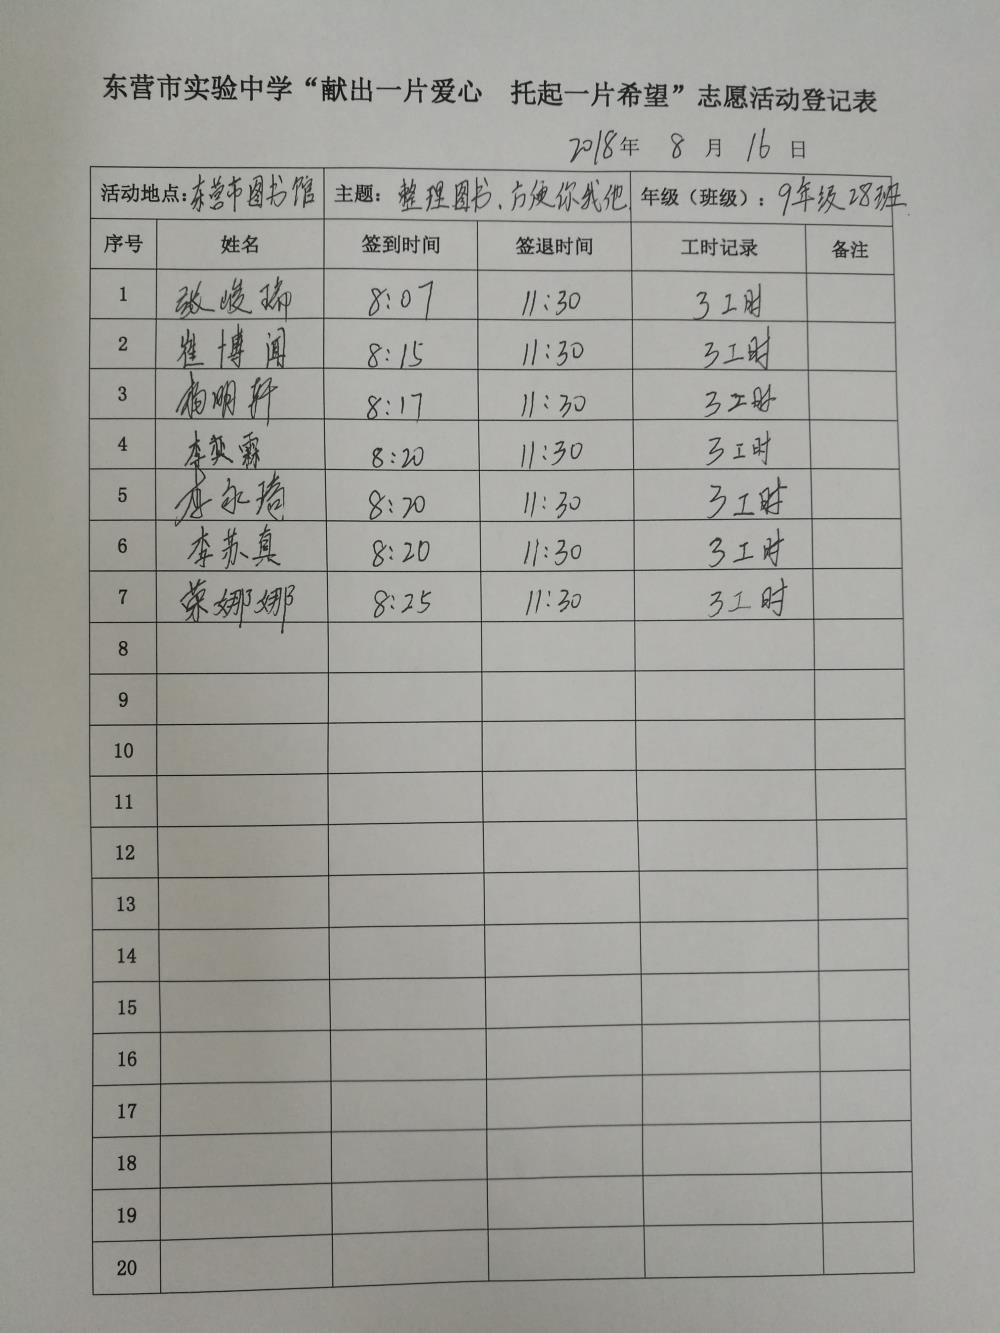 东营市实验中学“献出一片爱心 托起一片希望”志愿活动登记表
2018年 8 月 16 日
活动地点:东营市图书馆 主题: 整理图书、方便你我他 年级（班级）: 9年级28班
序号 姓名 签到时间 签退时间 工时记录 备注
1 张峻瑞 8:07 11:30 3工时
2 崔博闻 8:15 11:30 3工时
3 杨明轩 8:17 11:30 3工时
4 李奕霖 8:20 11:30 3工时
5 李永琦 8:20 11:30 3工时
6 李苏真 8:20 11:30 3工时
7 荣娜娜 8:25 11:30 3工时
8
9
10
11
12
13
14
15
16
17
18
19
20